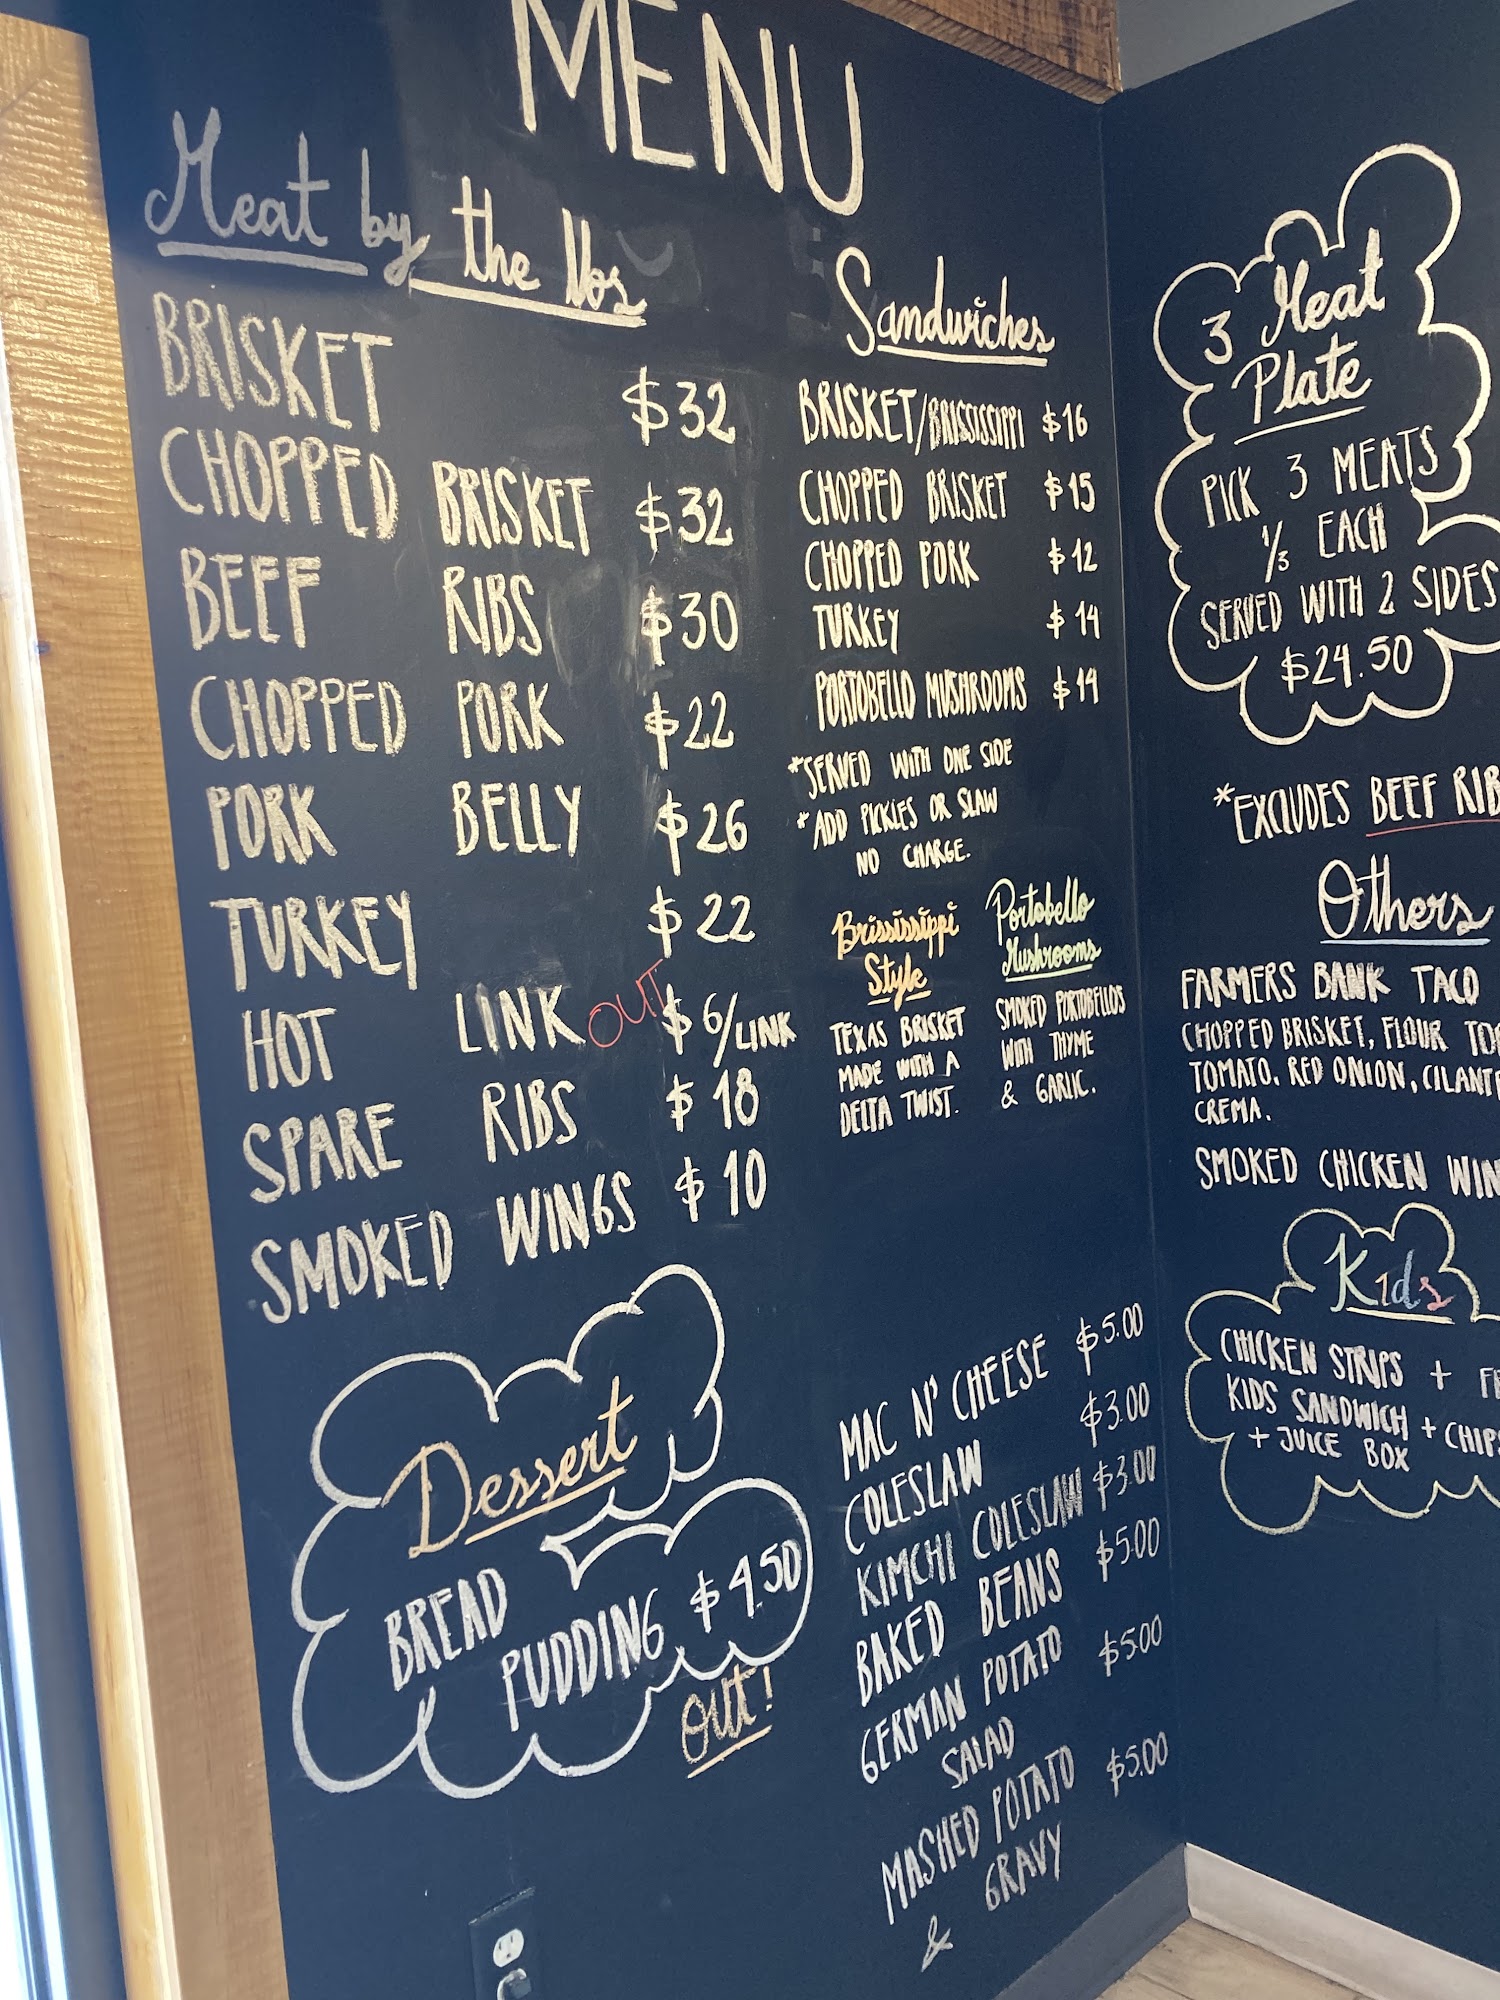 MENU
Meat by the lbs
BRISKET $32
CHOPPED BRISKET $32
BEEF RIBS $30
CHOPPED PORK $22
PORK BELLY $26
TURKEY $22
HOT LINK OUT $6/LINK
SPARE RIBS $18
SMOKED WINGS $10
Dessert
BREAD
PUDDING $4.50
OUT!
Sandwiches
BRISKET/BRISSISSIPPI $16
CHOPPED BRISKET $15
CHOPPED PORK $12
TURKEY $14
PORTOBELLO MUSHROOMS $14
*SERVED WITH ONE SIDE
*ADD PICKLES OR SLAW
NO CHARGE.
Brississippi
Style
TEXAS BRISKET
MADE WITH A
DELTA TWIST.
Portobello
Mushrooms
SMOKED PORTOBELLOS
WITH THYME
& GARLIC.
MAC N' CHEESE $5.00
COLESLAW $3.00
KIMCHI COLESLAW $3.00
BAKED BEANS $5.00
GERMAN POTATO $5.00
SALAD
MASHED POTATO $5.00
& GRAVY
3 Meat
Plate
PICK 3 MEATS
1/3 EACH
SERVED WITH 2 SIDES
$24.50
*EXCLUDES BEEF RIB
Others
FARMERS BANK TACO
CHOPPED BRISKET, FLOUR TO
TOMATO, RED ONION, CILANT
CREMA.
SMOKED CHICKEN WIN
Kids
CHICKEN STRIPS + F
KIDS SANDWICH + CHIPS
+ JUICE BOX